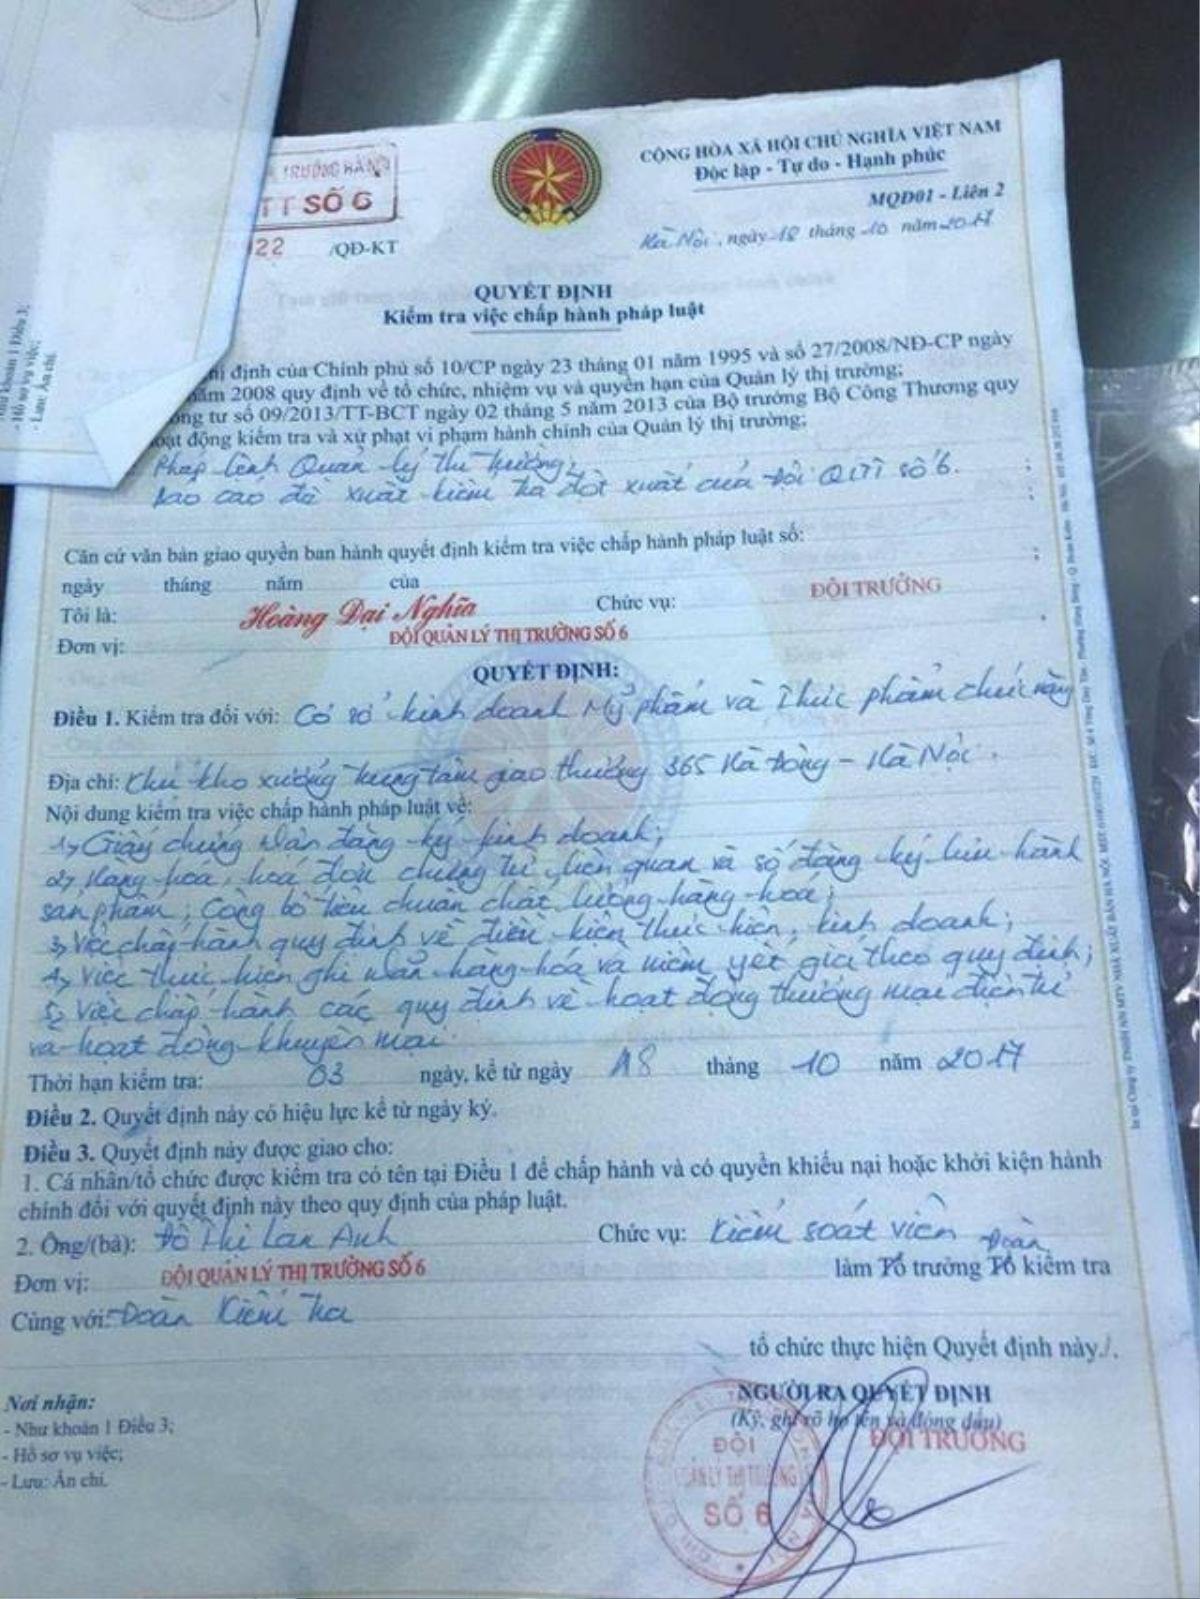 TRƯỜNG HÀ NỘI
TT SỐ 6
22 /QĐ-KT
CỘNG HÒA XÃ HỘI CHỦ NGHĨA VIỆT NAM
Độc lập - Tự do - Hạnh phúc
MQĐ01 - Liên 2
Hà Nội, ngày 18 tháng 10 năm 2017
QUYẾT ĐỊNH
Kiểm tra việc chấp hành pháp luật
định của Chính phủ số 10/CP ngày 23 tháng 01 năm 1995 và số 27/2008/NĐ-CP ngày
năm 2008 quy định về tổ chức, nhiệm vụ và quyền hạn của Quản lý thị trường;
tư số 09/2013/TT-BCT ngày 02 tháng 5 năm 2013 của Bộ trưởng Bộ Công Thương quy
động kiểm tra và xử phạt vi phạm hành chính của Quản lý thị trường;
Pháp lệnh Quản lý thị trường;
Báo cáo đề xuất kiểm tra đột xuất của Đội QLTT số 6. ;
Căn cứ văn bản giao quyền ban hành quyết định kiểm tra việc chấp hành pháp luật số:
ngày tháng năm của ;
Tôi là: Hoàng Đại Nghĩa Chức vụ: ĐỘI TRƯỞNG
Đơn vị: ĐỘI QUẢN LÝ THỊ TRƯỜNG SỐ 6
QUYẾT ĐỊNH:
Điều 1. Kiểm tra đối với: Cơ sở kinh doanh Mỹ phẩm và Thực phẩm chức năng
Địa chỉ: Khu kho xưởng trung tâm giao thương 365 Hà Đông - Hà Nội.
Nội dung kiểm tra việc chấp hành pháp luật về:
1, Giấy chứng nhận đăng ký kinh doanh;
2, Hàng hóa, hoá đơn chứng từ liên quan và số đăng ký lưu hành
sản phẩm; Công bố tiêu chuẩn chất lượng hàng hoá;
3, Việc chấp hành quy định về điều kiện thực hiện, kinh doanh;
4, Việc thực hiện ghi nhãn hàng hóa và niêm yết giá theo quy định;
5, Việc chấp hành các quy định về hoạt động thương mại điện tử
và hoạt động khuyến mại.
Thời hạn kiểm tra: 03 ngày, kể từ ngày 18 tháng 10 năm 2017
Điều 2. Quyết định này có hiệu lực kể từ ngày ký.
Điều 3. Quyết định này được giao cho:
1. Cá nhân/tổ chức được kiểm tra có tên tại Điều 1 để chấp hành và có quyền khiếu nại hoặc khởi kiện hành
chính đối với quyết định này theo quy định của pháp luật.
2. Ông/(bà): Đỗ Thị Lan Anh Chức vụ: Kiểm soát viên
Đoàn
Đơn vị: ĐỘI QUẢN LÝ THỊ TRƯỜNG SỐ 6 làm Tổ trưởng Tổ kiểm tra
Cùng với: Đoàn Kiểm tra
tổ chức thực hiện Quyết định này./.
Nơi nhận:
- Như khoản 1 Điều 3;
- Hồ sơ vụ việc;
- Lưu: Ấn chỉ.
NGƯỜI RA QUYẾT ĐỊNH
(Ký, ghi rõ họ tên và đóng dấu)
ĐỘI TRƯỞNG
ĐỘI
QUẢN LÝ THỊ TRƯỜNG
SỐ 6
khoản 1 Điều 3;
- Hồ sơ vụ việc;
- Lưu: Ấn chỉ.